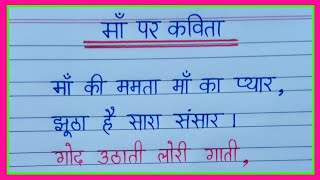 माँ पर कविता
माँ की ममता माँ का प्यार,
झूठा है सारा संसार ।
गोद उठाती लोरी गाती,